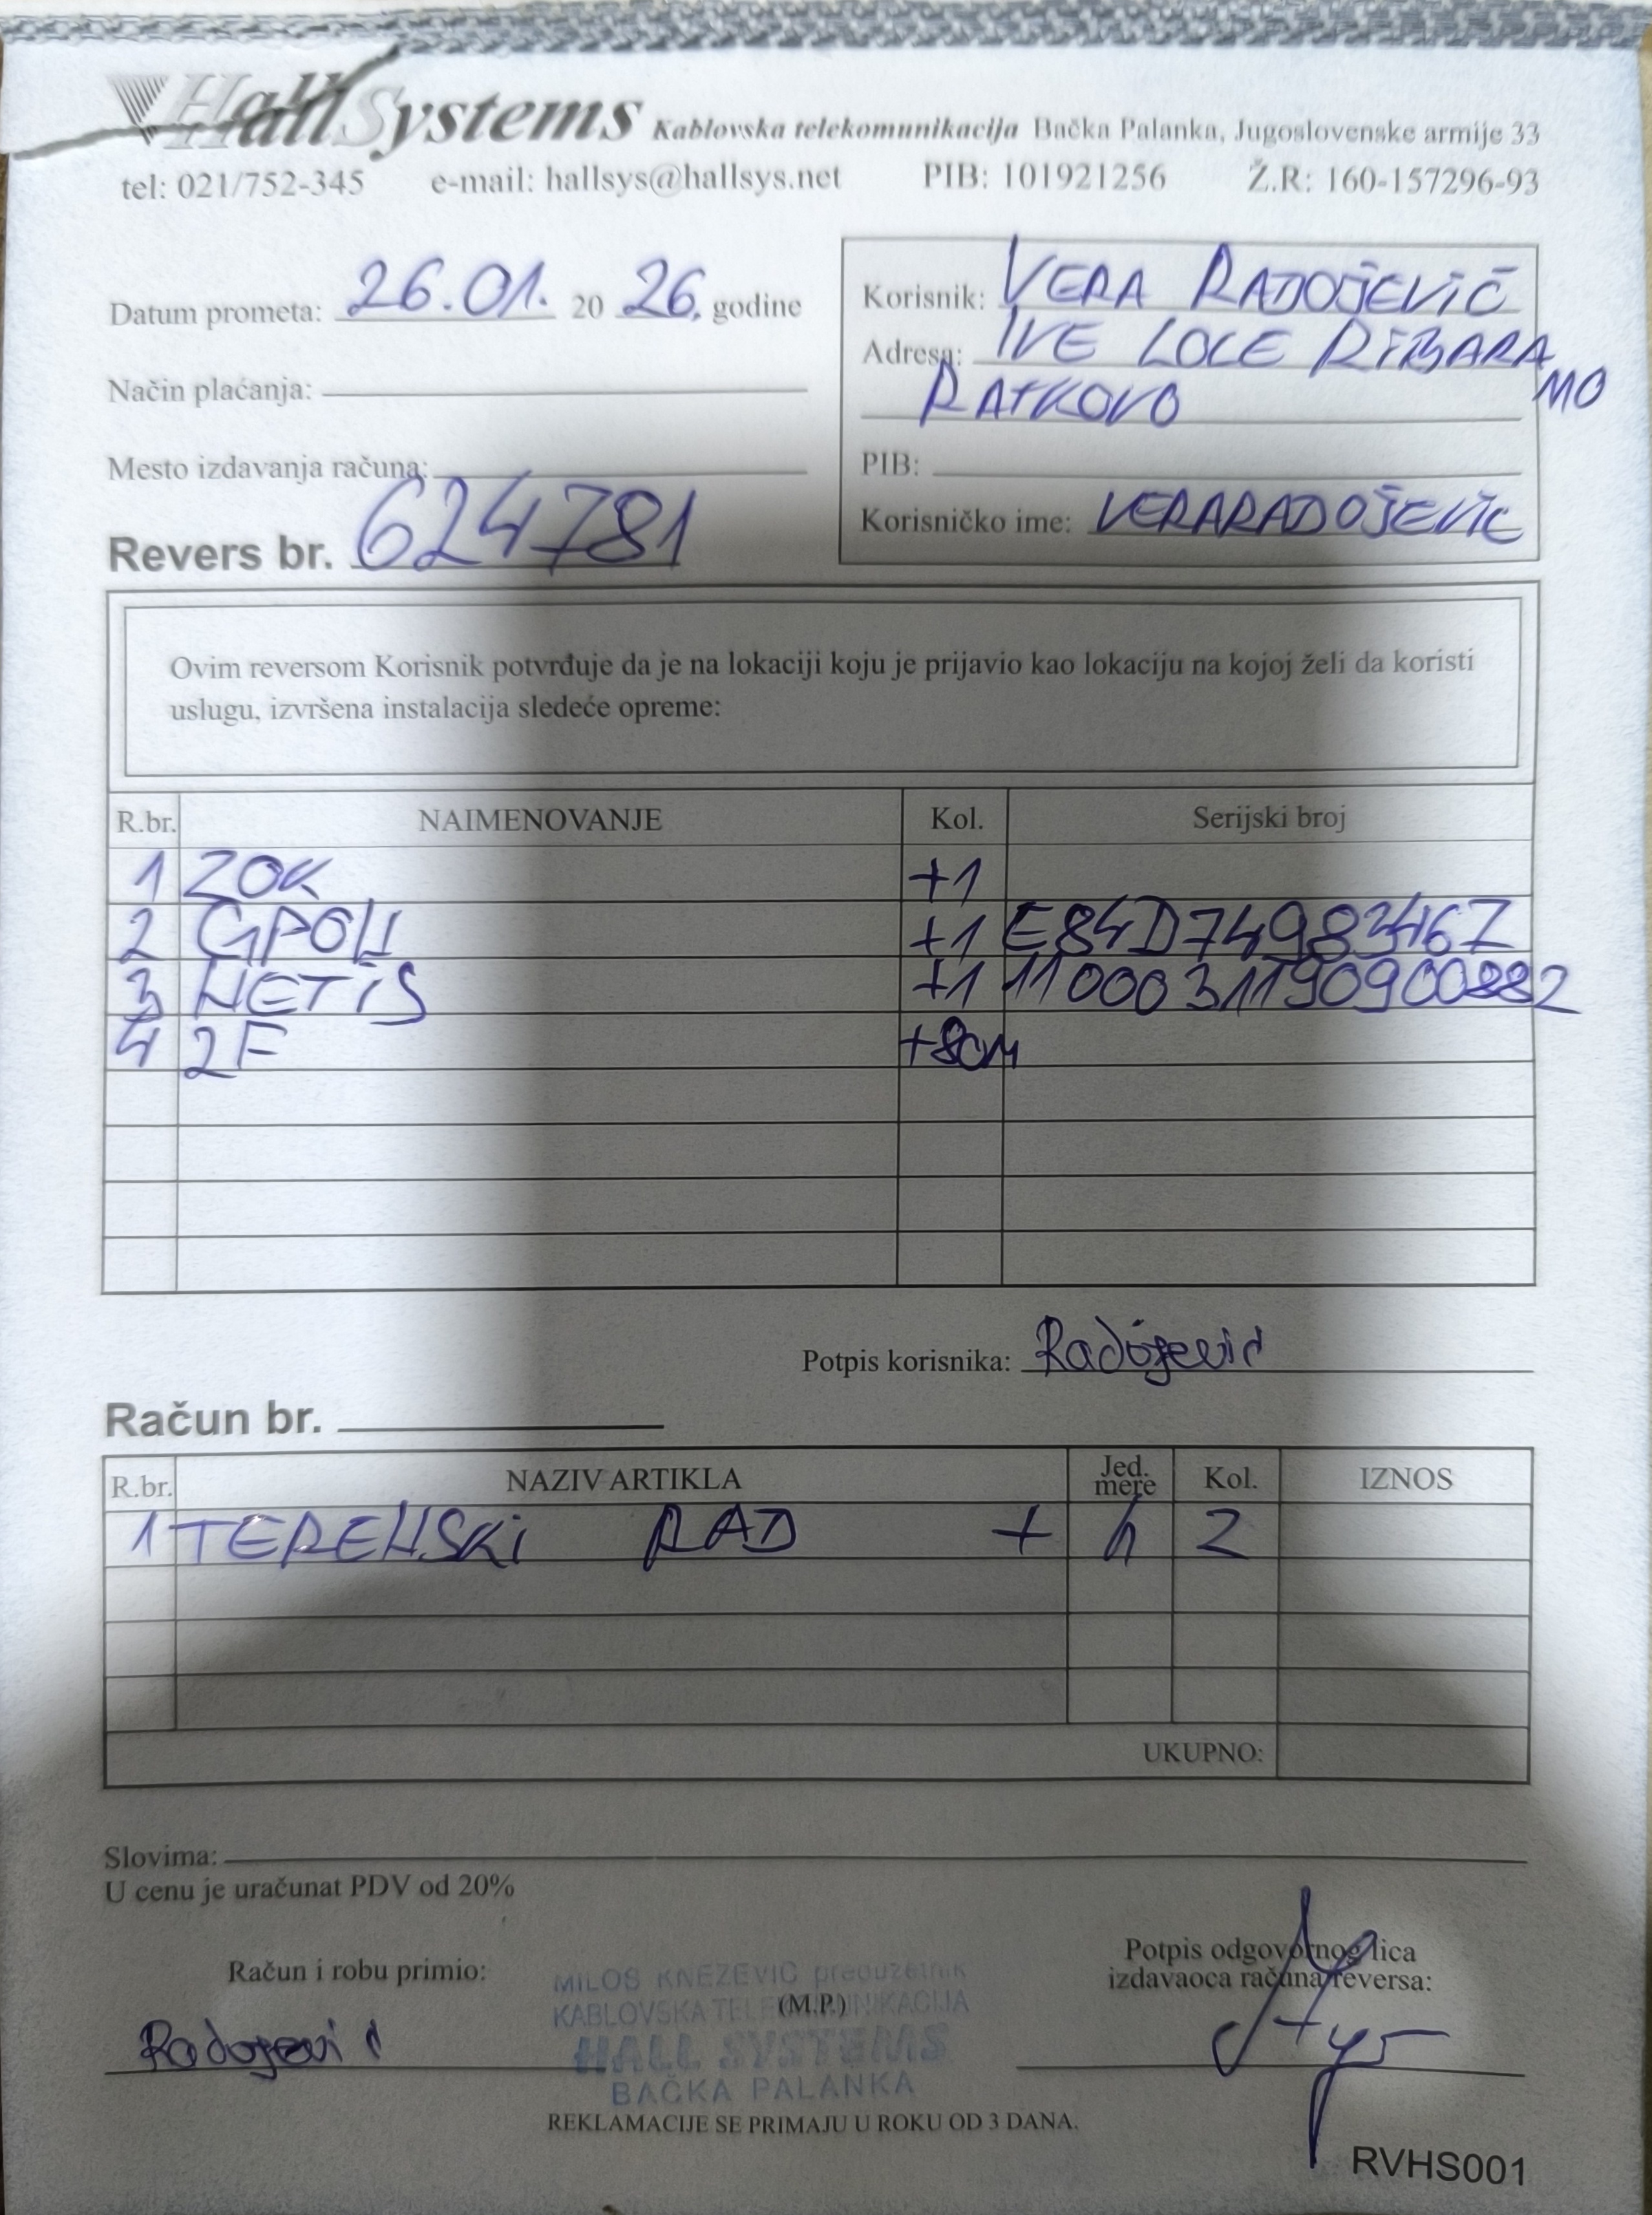 HallSystems Kablovska telekomunikacija Bačka Palanka, Jugoslovenske armije 33
tel: 021/752-345 e-mail: hallsys@hallsys.net PIB: 101921256 Ž.R: 160-157296-93
Datum prometa: 26.01. 20 26. godine
Način plaćanja:
Mesto izdavanja računa:
Revers br. 624781
Korisnik: VERA RADOJEVIĆ
Adresa: IVE LOLE RIBARA
RATKOVO
PIB:
Korisničko ime: VERARADOJEVIC
Ovim reversom Korisnik potvrđuje da je na lokaciji koju je prijavio kao lokaciju na kojoj želi da koristi
uslugu, izvršena instalacija sledeće opreme:
R.br. NAIMENOVANJE Kol. Serijski broj
1 ZOK +1
2 GPON +1
3 NETIS +1
4 2F +80M
Potpis korisnika: Radojević
Račun br.
R.br. NAZIV ARTIKLA Jed. mere Kol. IZNOS
1 TERENSKI RAD + h 2
UKUPNO:
Slovima:
U cenu je uračunat PDV od 20%
Račun i robu primio:
Radojević
MILOŠ KNEŽEVIĆ preduzetnik
KABLOVSKA TELEKOMUNIKACIJA
(M.P.)
HALL SYSTEMS
BAČKA PALANKA
Potpis odgovornog lica
izdavaoca računa/reversa:
REKLAMACIJE SE PRIMAJU U ROKU OD 3 DANA.
RVHS001